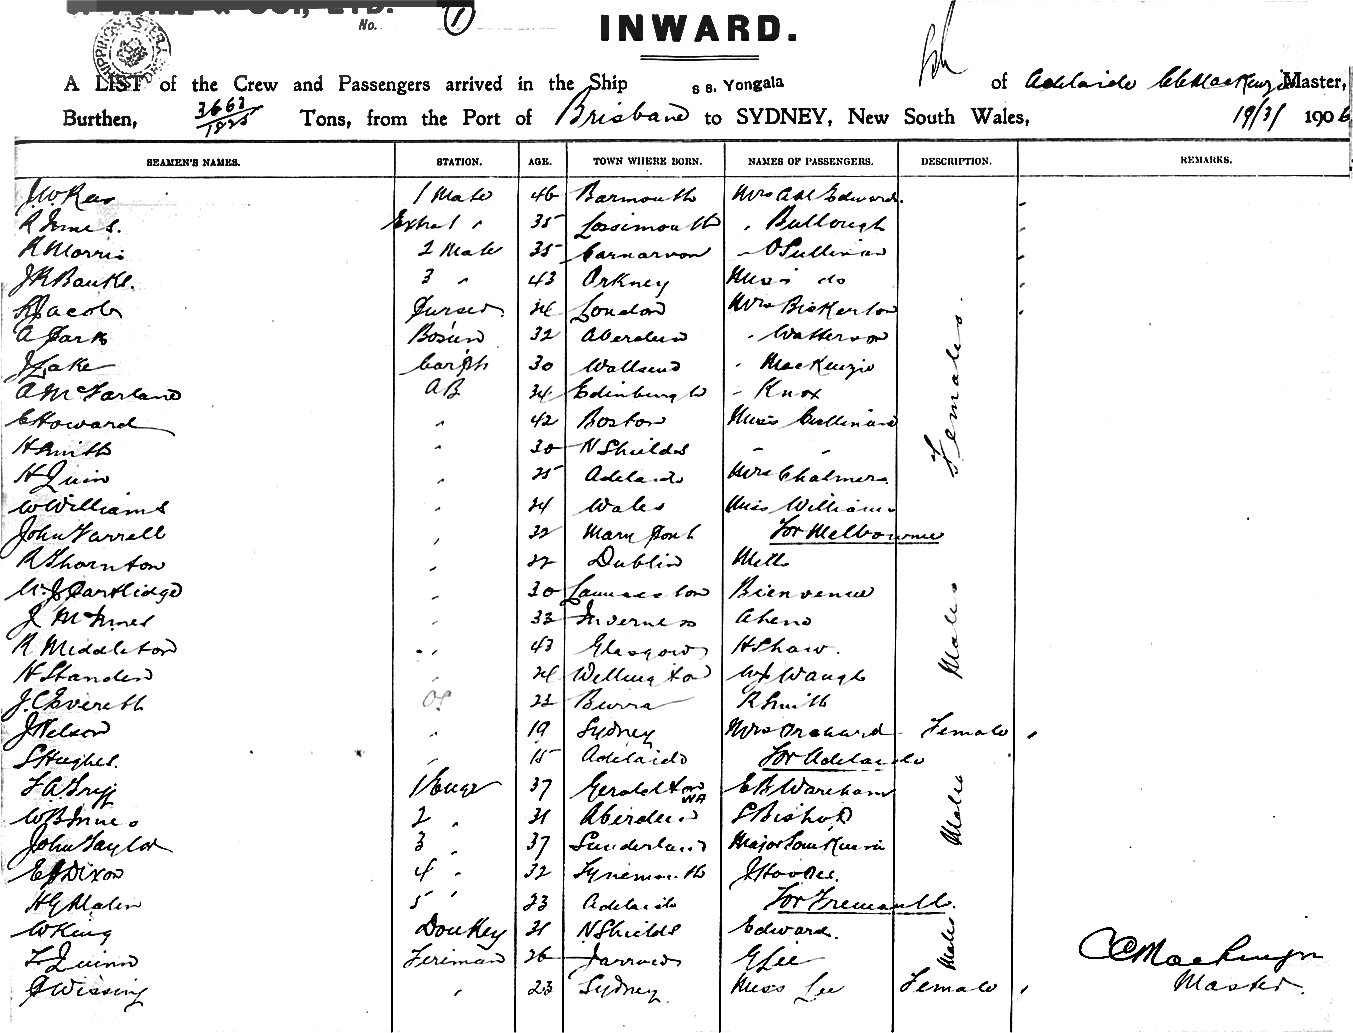 No.
1
INWARD.
A LIST of the Crew and Passengers arrived in the Ship SS. Yongala of Adelaide CCMacKenzie Master,
Burthen, 3663/1825 Tons, from the Port of Brisbane to SYDNEY, New South Wales, 19/3/ 1906
SEAMEN'S NAMES. STATION. AGE. TOWN WHERE BORN. NAMES OF PASSENGERS. DESCRIPTION. REMARKS.
J W Rees 1 Mate 46 Barmouth Mrs Edward.
R Innes. Extra 1 " 35 Lossiemouth " Bullough
R Morris 2 Mate 35 Carnarvon " O'Sullivan
J R Banks. 3 " 43 Orkney Miss do
Jacobs Purser 24 London Mrs Bickerton
A Park Bosun 32 Aberdeen " Watterson
J Lake Carptr 30 Wallsend " MacKenzie
A McFarland AB 34 Edinburgh " Knox
C Howard " 42 Boston Miss Cullinane
H Smith " 30 N Shields " "
H Quin " 25 Adelaide Mrs Chalmers
W Williams " 24 Wales Miss Williams
Females.
John Farrell " 32 Maryport For Melbourne
R Thornton " 22 Dublin Mills
W J Partridge " 30 Launceston Bienvenue
J McInnes " 33 Inverness Ahern
R Middleton " 43 Glasgow H Shaw.
H Standen " 24 Wellington W J Waugh
Males
J. C Evereth OS 22 Burra R Smith
J Nelson " 19 Sydney Mrs Orchard Female
S Hughes. " 15 Adelaide For Adelaide
F A 1 Engr 37 Geraldton WA E B Wareham
W B Innes 2 " 31 Aberdeen S Bishop
John Taylor 3 " 37 Sunderland Major
E J Dixon 4 " 32 Tynemouth J Hooper.
Males
H G Malin 5 " 23 Adelaide For Fremantle.
W King Donkey 31 N Shields Edward.
F Quinn Fireman 26 Jarrow G Lee
Males
Wissing " 23 Sydney Miss Lee Female
CCMacKenzie
Master.